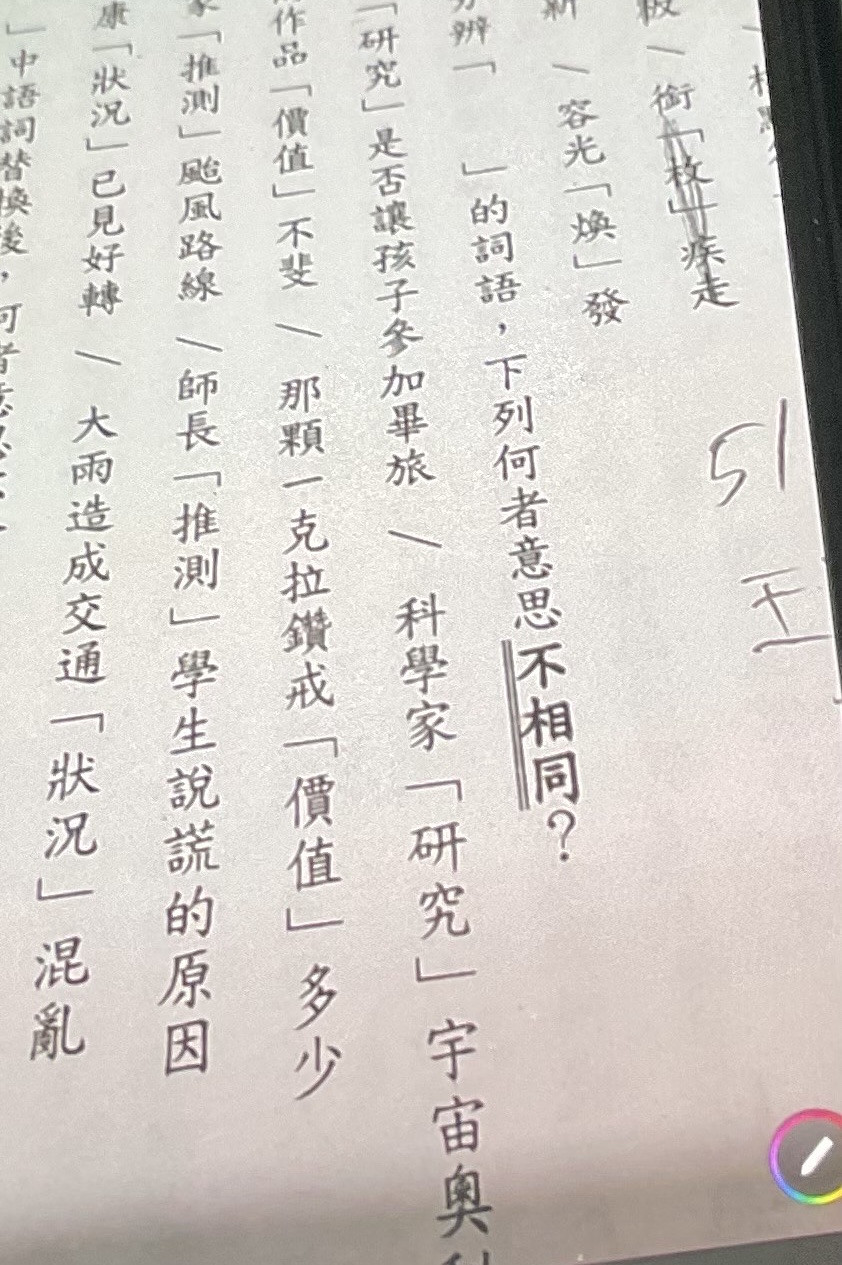 銜「枚」疾走
新 \ 容光「煥」發
分辨「 」的詞語，下列何者意思不相同？
「研究」是否讓孩子參加畢旅 \ 科學家「研究」宇宙奧
作品「價值」不斐 \ 那顆一克拉鑽戒「價值」多少
家「推測」颱風路線 \ 師長「推測」學生說謊的原因
康「狀況」已見好轉 \ 大雨造成交通「狀況」混亂
」中語詞替換後，何者意思
51